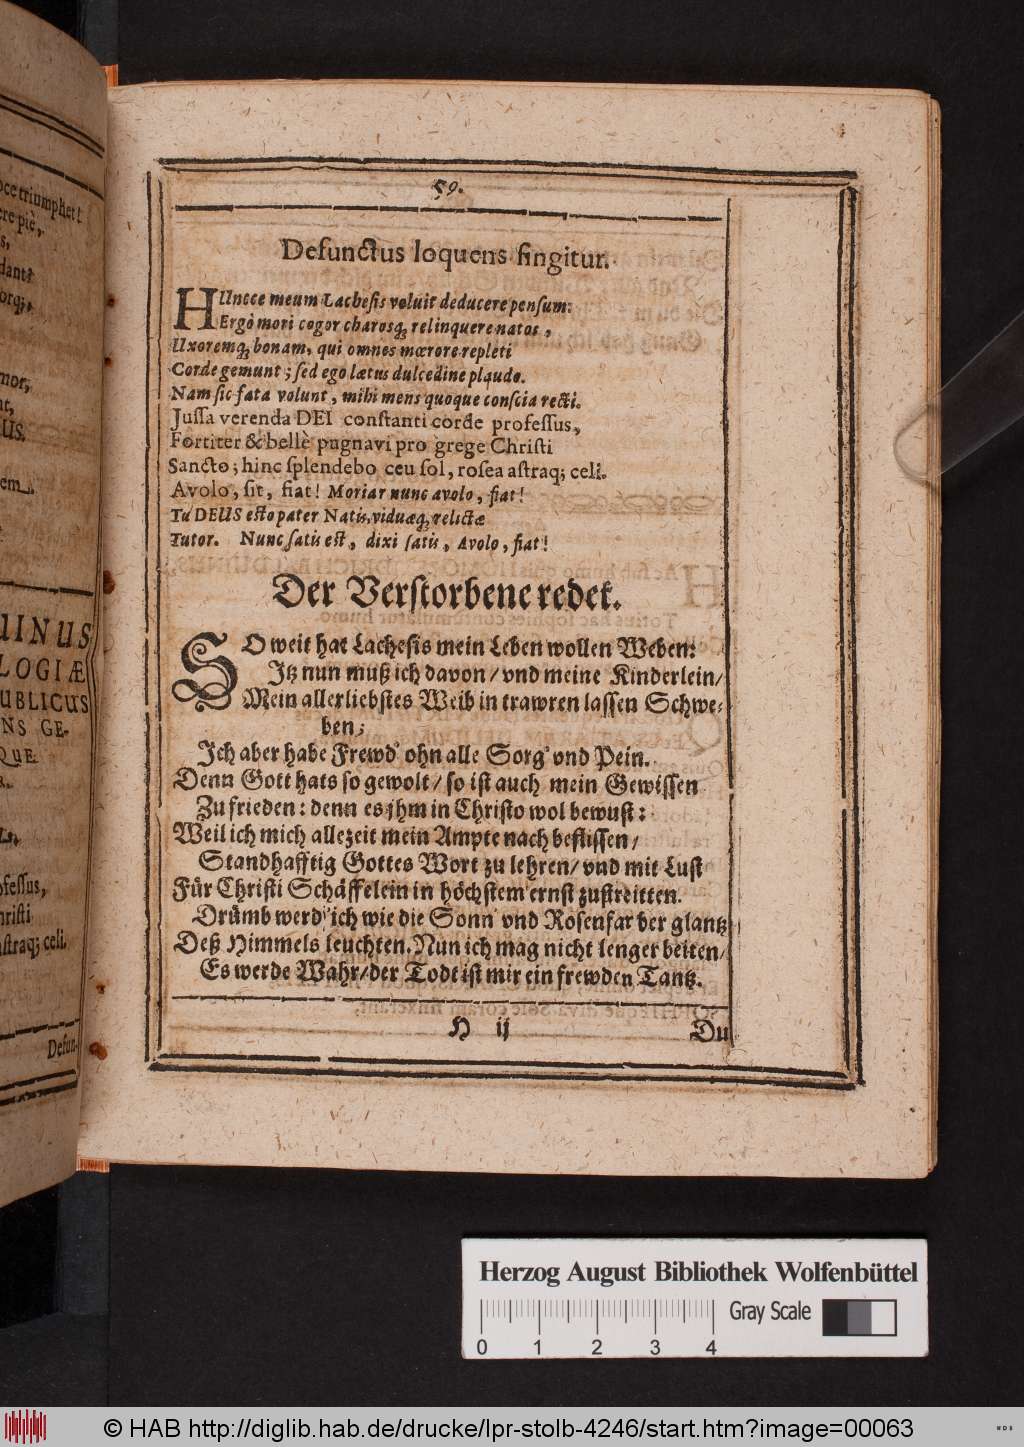 oce triumphet!
ere piè,
s,
dant?
orq;,
mor,
nt,
US.
em.
UINUS
LOGIÆ
UBLICUS
NS GE-
QUE
ofessus,
hristi
astraq; celi.
Defun-
59.
Defunctus loquens fingitur.
HUncce meum Lachesis voluit deducere pensum:
Ergò mori cogor charosq; relinquere natos,
Uxoremq; bonam, qui omnes mœrore repleti
Corde gemunt; sed ego lætus dulcedine plaudo.
Nam sic fata volunt, mihi mens quoque conscia recti.
Jussa verenda DEI constanti corde professus,
Fortiter & bellè pugnavi pro grege Christi
Sancto; hinc splendebo ceu sol, rosea astraq; celi.
Avolo, sit, fiat! Moriar nunc avolo, fiat!
Tu DEUS esto pater Natis, viduæq; relictæ
Tutor. Nunc satis est, dixi satis, Avolo, fiat!
Der Verstorbene redet.
SO weit hat Lachesis mein Leben wollen Weben:
Itz nun muß ich davon / vnd meine Kinderlein/
Mein allerliebstes Weib in trawren lassen Schwe-
ben;
Ich aber habe Frewd' ohn alle Sorg' vnd Pein.
Denn Gott hats so gewolt / so ist auch mein Gewissen
Zu frieden: denn es jhm in Christo wol bewust:
Weil ich mich allezeit mein Ampte nach beflissen /
Standhafftig Gottes Wort zu lehren / vnd mit Lust
Für Christi Schäffelein in höchstem ernst zustreitten.
Drümb werd' ich wie die Sonn' vnd Rosenfarber glantz
Deß Himmels leuchten. Nun ich mag nicht lenger beiten/
Es werde Wahr / der Todt ist mir ein frewden Tantz.
H ij
Du
Herzog August Bibliothek Wolfenbüttel
Gray Scale
0 1 2 3 4
© HAB http://diglib.hab.de/drucke/lpr-stolb-4246/start.htm?image=00063